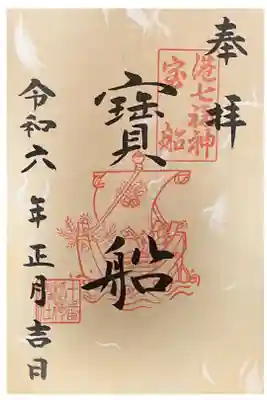 奉拝
港七福神
宝船
寳船
令和六年正月吉日